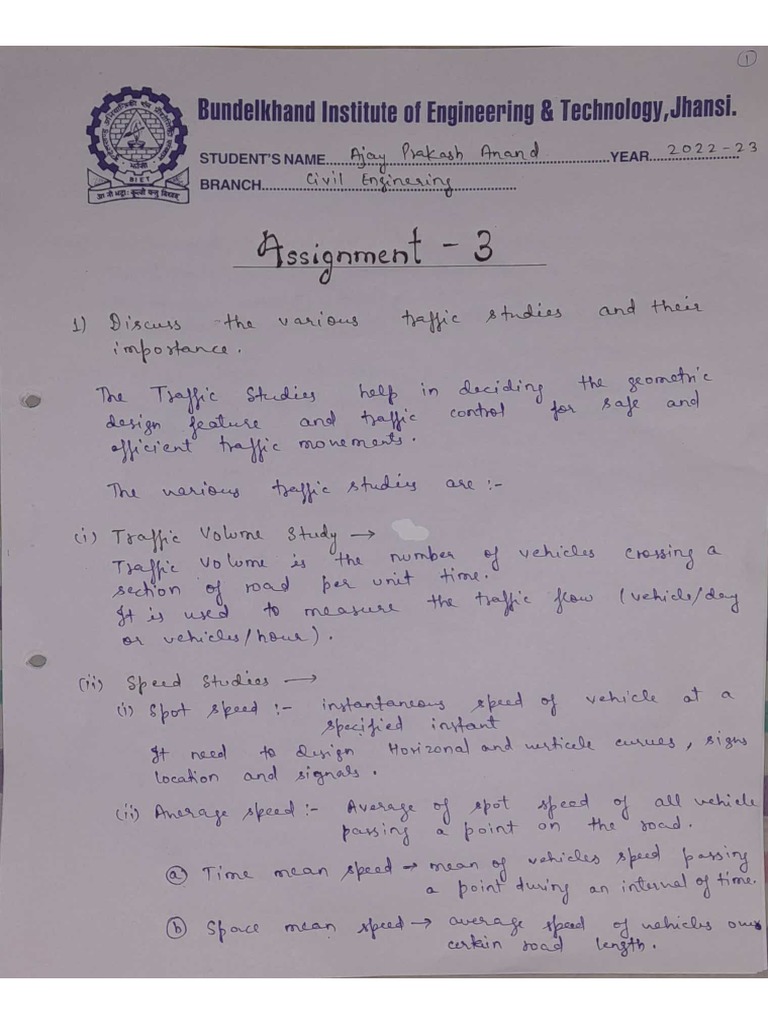 1
Bundelkhand Institute of Engineering & Technology, Jhansi.
STUDENT'S NAME Ajay Prakash Anand YEAR 2022-23
BRANCH Civil Enginering
BIET
Assignment - 3
1) Discuss the various traffic studies and their
importance.
The Traffic Studies help in deciding the geometric
design feature and traffic control for safe and
efficient traffic movements.
The various traffic studies are :-
(i) Traffic Volume Study →
Traffic Volume is the number of vehicles crossing a
section of road per unit time.
It is used to measure the traffic flow (vehicle/day
or vehicles/hour).
(ii) Speed Studies →
(i) Spot speed :- instantaneous speed of vehicle at a
specified instant
It need to design Horizonal and verticle curves, signs
location and signals.
(ii) Average speed :- Average of spot speed of all vehicle
passing a point on the road.
(a) Time mean speed → mean of vehicles speed passing
a point during an interval of time.
(b) Space mean speed → average speed of vehicles over
certain road length.